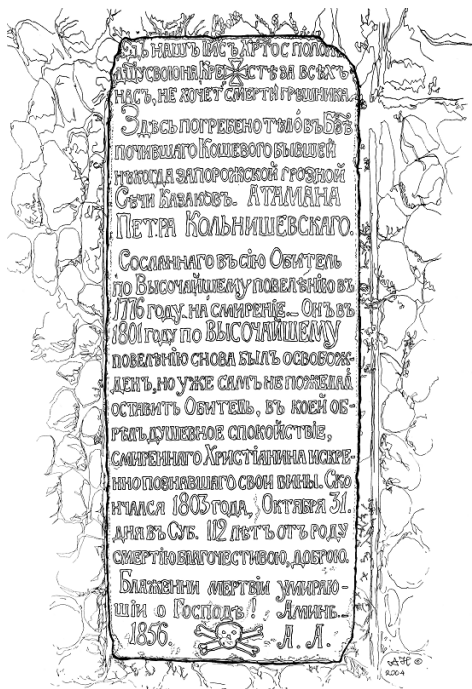 нашъ Іисъ Хртос поло
душу свою на Кре стѣ за всѣхъ
насъ, не хочет смерти грѣшника.
Здѣсь погребено тѣло въ Бзѣ
почившаго Кошевого бывшей
нѣкогда запорожской грозной
Сѣчи Казаковъ. АТАМАНА
Петра Кольнишевскаго.
Сосланнаго въ сію Обитель
по Высочайшему повелѣнію въ
1776 году. на смиреніе. Онъ въ
1801 году по ВЫСОЧАЙШЕМУ
повелѣнію снова былъ освобож-
денъ, но уже самъ не пожелал
оставить Обитель, въ коей об-
рѣлъ душевное спокойствіе,
смиреннаго Христіанина искре-
нно познавшаго свои вины. Ско
нчался 1803 года, Октября 31.
дня въ Суб. 112 лѣтъ отъ роду
смертію благочестивою, доброю.
Блаженни мертвіи умираю-
щіи о Господѣ! Аминь.
1856. А. А.
АН ©
2004